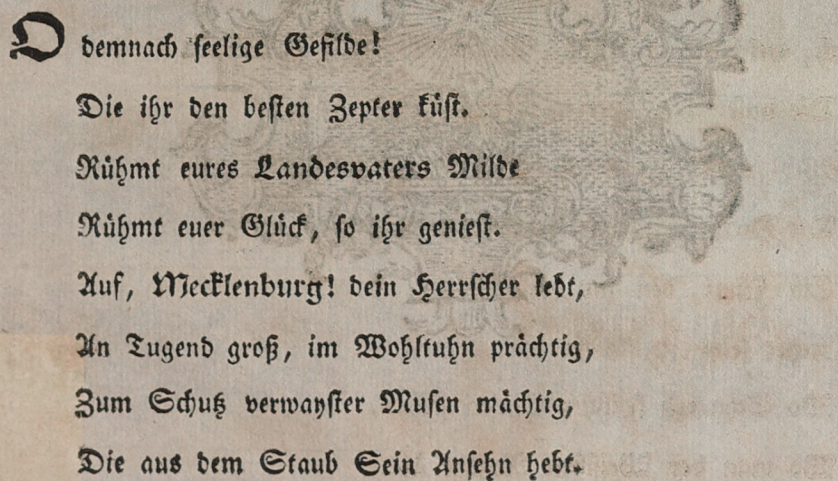 O demnach seelige Gefilde!
Die ihr den besten Zepter küst.
Rühmt eures Landesvaters Milde
Rühmt euer Glück, so ihr geniest.
Auf, Mecklenburg! dein Herrscher lebt,
An Tugend groß, im Wohltuhn prächtig,
Zum Schutz verwayster Musen mächtig,
Die aus dem Staub Sein Ansehn hebt.